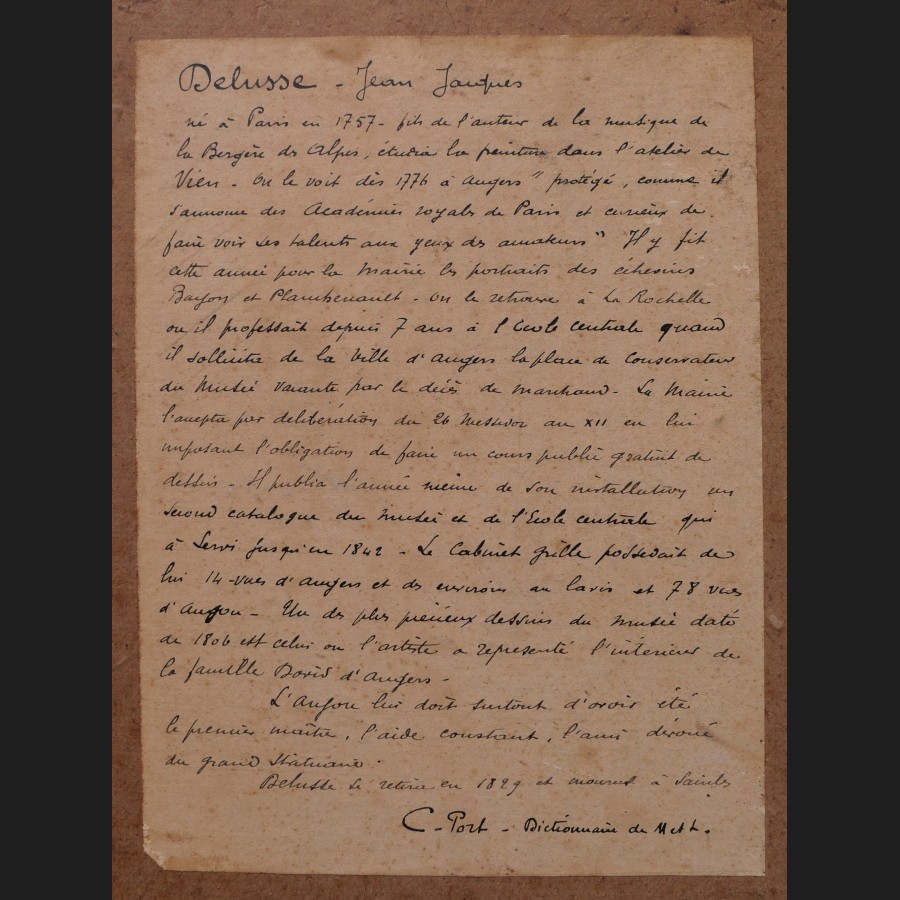 Delusse - Jean Jacques
né à Paris en 1757 - fils de l'auteur de la musique de
la Bergère des Alpes, étudia la peinture dans l'atelier de
Vien - On le voit dès 1776 à Angers " protégé, comme il
s'annonce des Académies royales de Paris et curieux de
faire voir ses talents aux yeux des amateurs" Il y fit
cette année pour la Mairie les portraits des échevins
et - On le retrouve à La Rochelle
ou il professait depuis 7 ans à l'Ecole centrale quand
il sollicita de la Ville d'Angers la place de Conservateur
du Musée vacante par le décès de Marchand - La Mairie
l'accepta par délibération du 26 Messidor an XII en lui
imposant l'obligation de faire un cours public gratuit de
dessin - Il publia l'année même de son installation un
second catalogue du Musée et de l'Ecole centrale qui
a servi jusqu'en 1842 - Le Cabinet grille possedait de
lui 14 - vues d'Angers et des environs au lavis et 78 vues
d'Anjou - Un des plus précieux dessins du musée daté
de 1806 est celui ou l'artiste a représenté l'intérieur de
la famille David d'Angers -
L'Anjou lui doit surtout d'avoir été
le premier maître, l'aide constant, l'ami dévoué
du grand Statuaire .
Delusse se retira en 1829 et mourut à Saintes
C - Port - Dictionnaire de M et L.